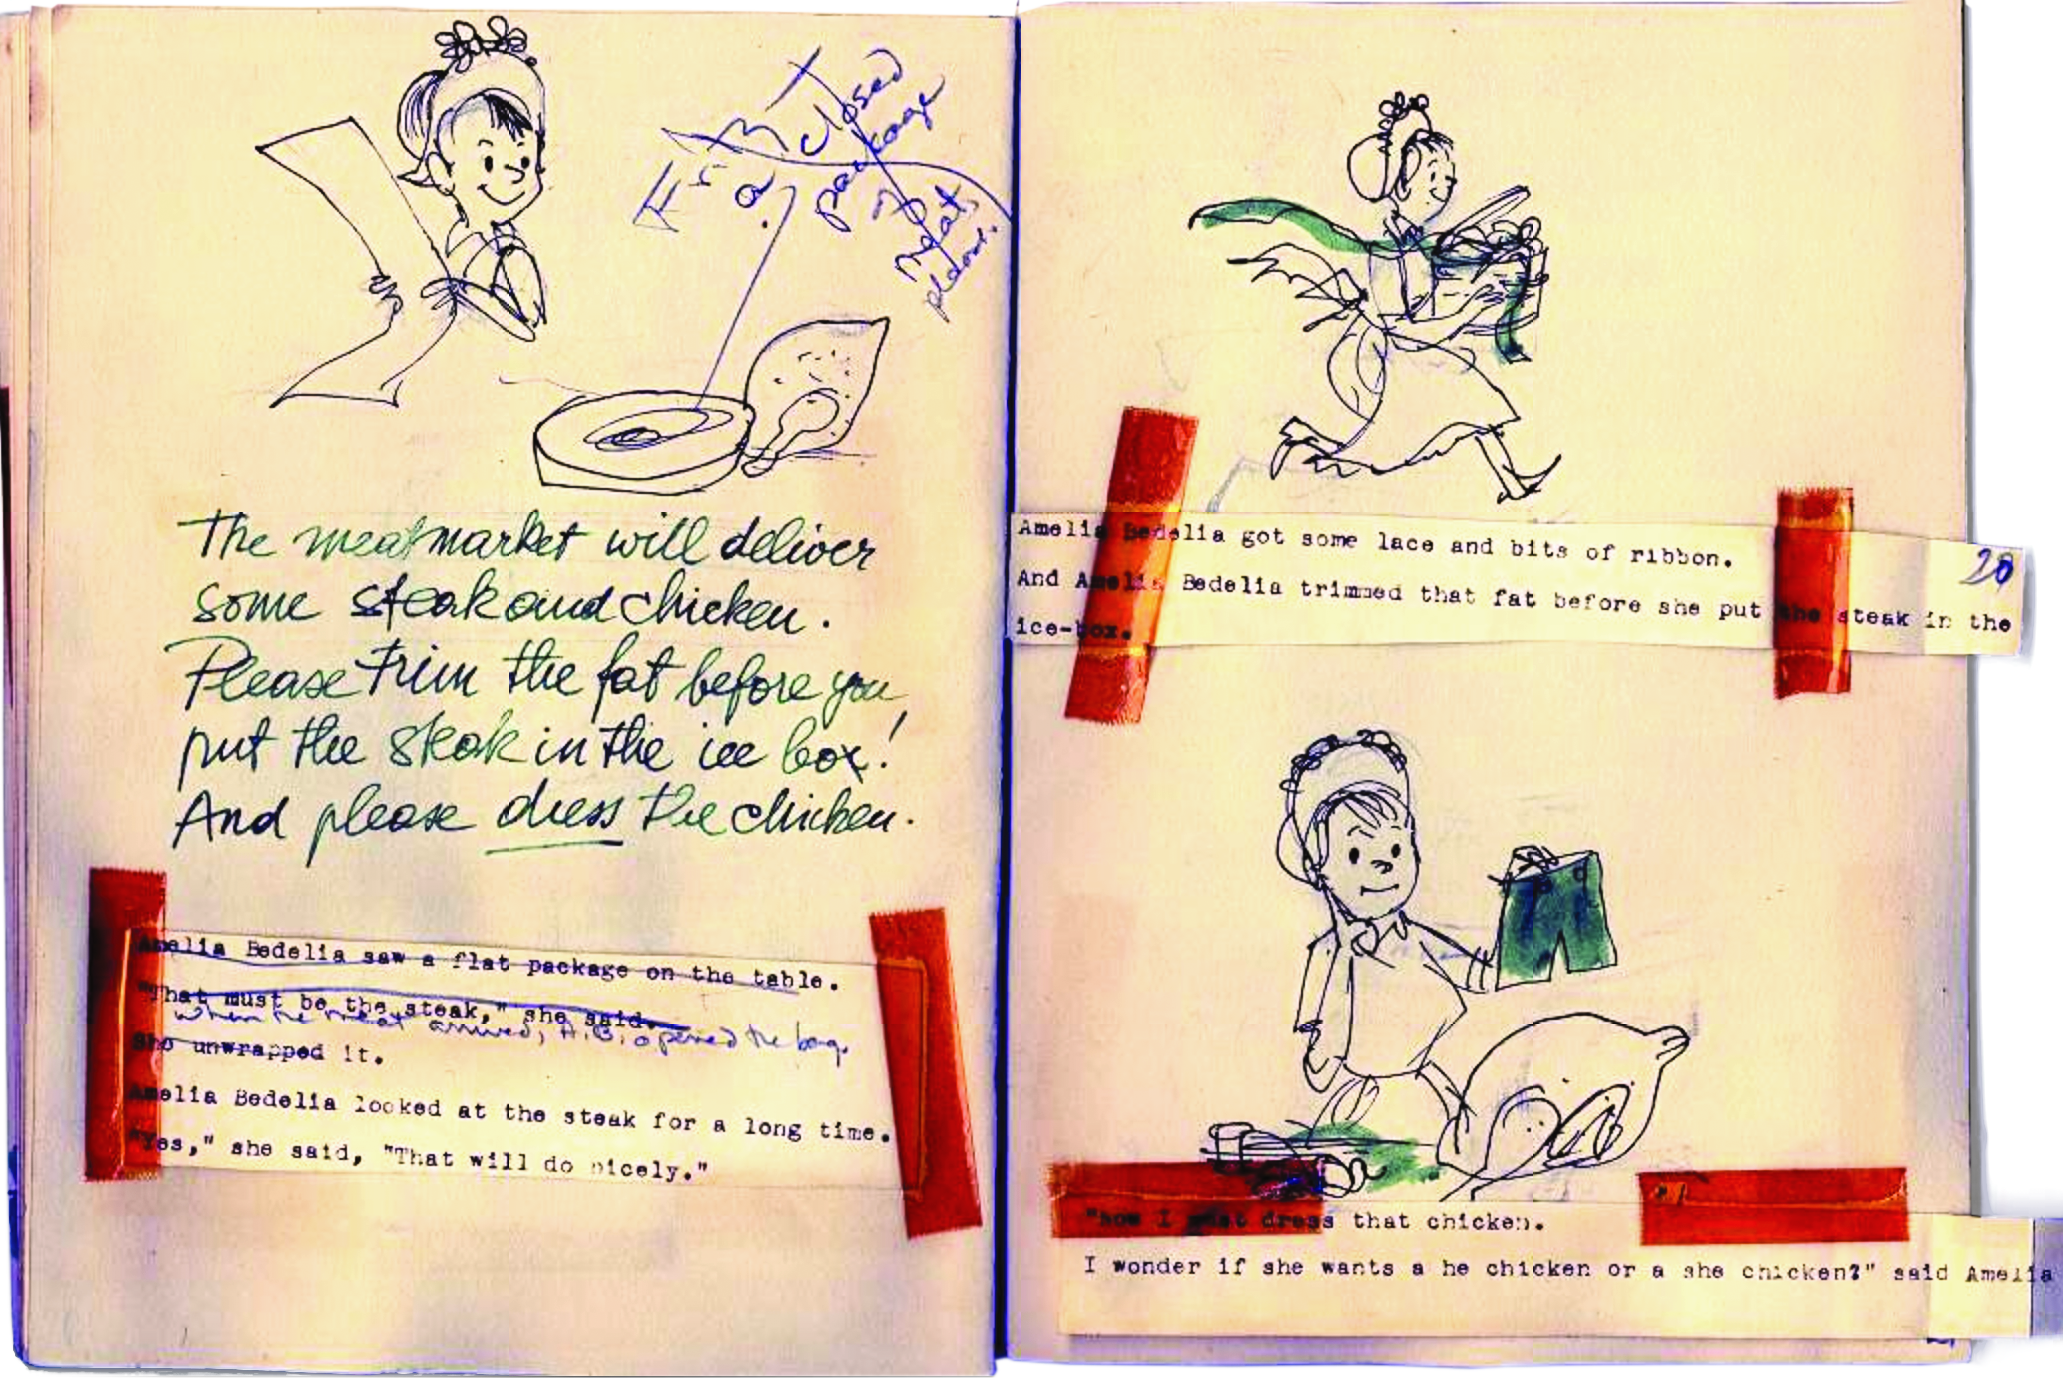 a closed
package
of
meat,
The meatmarket will deliver
some steak and chicken.
Please trim the fat before you
put the steak in the ice box!
And please dress the chicken.
Amelia Bedelia saw a flat package on the table.
"That must be the steak," she said.
when the meat arrived, A.B. opened the bag.
She unwrapped it.
Amelia Bedelia looked at the steak for a long time.
"Yes," she said, "That will do nicely."
Amelia Bedelia got some lace and bits of ribbon.
20
And Amelia Bedelia trimmed that fat before she put the steak in the
ice-box.
"Now I must dress that chicken.
I wonder if she wants a he chicken or a she chicken?" said Amelia